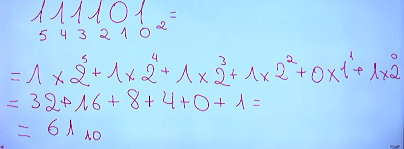 111101₂ =
5 4 3 2 1 0
= 1 × 2⁵ + 1 × 2⁴ + 1 × 2³ + 1 × 2² + 0 × 1¹ + 1 × 2⁰
= 32 + 16 + 8 + 4 + 0 + 1 =
= 61₁₀